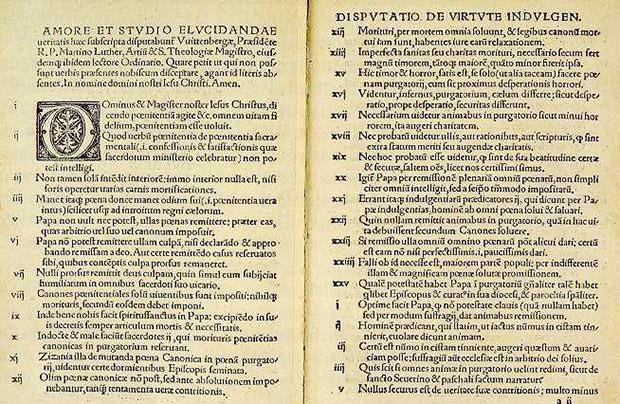 AMORE ET STVDIO ELVCIDANDAE
ueritatis hæc subscripta disputabunť Vuittenbergæ, Præsidẽte
R. P. Martino Luther, Artiũ & S. Theologiæ Magistro, eius-
demqʒ ibidem lectore Ordinatio. Quare petit ut qui non pos-
sunt uerbis præsentes nobiscum disceptare, agant id literis ab-
sentes. In nomine domini nostri Iesu Christi. Amen.
i DOminus & Magister noster Iesus Christus, di-
cendo pœnitentiã agite &c. omnem uitam fi
delium, pœnitentiam esse uoluit.
ij Quod uerbũ pœnitentia de pœnitentia sacra-
mentali (.i. confessionis & satisfactionis quæ
sacerdotum ministerio celebratur) non po-
test intelligi.
iij Non tamen solã intẽdit interiorẽ: immo interior nulla est, nisi
foris operetur uarias carnis mortificationes.
iiij Manet itaqʒ pœna donec manet odium sui (.i. pœnitentia uera
intus) scilicet usqʒ ad introitum regni cælorum.
v Papa non uult nec põt, ullas pœnas remittere: præter eas,
quas arbitrio uel suo uel canonum imposuit.
vj Papa nõ potest remittere ullam culpã, nisi declarãdo & appro-
bando remissam a deo. Aut certe remittẽdo casus reseruatos
sibi, quibus contẽptis culpa prorsus remaneret.
vij Nulli prorsus remittit deus culpam, quin simul eum subijciat
humiliatum in omnibus sacerdoti suo uicario.
viij Canones pœnitentiales solũ uiuentibus sunt impositi: nihilqʒ
morituris, secundũ eosdem debet imponi.
ix Inde bene nobis facit spiritussanctus in Papa: excipiẽdo in su-
is decretis semper articulum mortis & necessitatis.
x Indocte & male faciũt sacerdotes ij, qui morituris pœnitẽtias
canonicas in purgatorium reseruant.
xj Zizania illa de mutanda pœna Canonica in pœnã purgato-
rij, uidentur certe dormientibus Episcopis seminata.
xij Olim pœnæ canonicæ nõ post, sed ante absolutionem impo-
nebantur, tanqʒ tentamenta ueræ contritionis.
DISPVTATIO DE VIRTVTE INDVLGEN.
xiij Morituri, per mortem omnia soluunt, & legibus canonũ mor-
tui iam sunt, habentes iure earũ relaxationem.
xiiij Imperfecta sanitas seu charitas morituri, necessario secum fert
magnũ timorem, tãtoqʒ maiorẽ, quãto minor fuerit ipsa.
xv Hic timor & horror, satis est, se solo (ut alia taceam) facere pœ-
nam purgatorij, cum sit proximus desperationis horrori.
xvj Videntur, infernus, purgatorium, cælum differre: sicut despe-
ratio, prope desperatio, securitas differunt.
xvij Necessarium uidetur animabus in purgatorio sicut minui hor-
rorem, ita augeri charitatem.
xviij Nec probatũ uidetur ullis, aut rationibus, aut scripturis, qʒ sint
extra statum meriti seu augendæ charitatis.
xix Nec hoc probatũ esse uidetur, qʒ sint de sua beatitudine certæ
& securæ, saltem oẽs, licet nos certissimi simus.
xx Igiť Papa per remissionẽ plenariã omniũ pœnarũ, non simpli
citer omniũ intelligit, sed a seipõ tñmodo impositarũ.
xxj Errant itaqʒ indulgentiarũ prædicatores ij, qui dicunt per Pa-
pæ indulgentias, hominẽ ab omni pœna solui & saluari.
xxij Quin nullam remittit animabus in purgatorio, quã in hac ui-
ta debuissent secundum Canones soluere.
xxiij Si remissio ulla omniũ omnino pœnarũ põt alicui dari; certũ
est eam nõ nisi perfectissimis .i. paucissimis dari.
xxiiij Falli ob id necesse est, maiorem partẽ populi: per indifferentẽ
illam & magnificam pœnæ solutæ promissionem.
xxv Qualẽ potestatẽ habet Papa ĩ purgatoriũ gñaliter talẽ habet
qlibet Episcopus & curat9 in sua diocesi, & parochia spãliter.
j Optime facit Papa, qʒ nõ potestate clauis (quã nullam habet)
sed per modum suffragij, dat animabus remissionem.
ij Hominẽ prædicant, qui statim, ut iactus nũmus in cistam tin-
nierit, euolare dicunt animam.
iij Certũ est nũmo in cistam tinniente, augeri quæstum & auari-
ciam posse: suffragiũ aũt ecclesiæ est in arbitrio dei solius.
iiij Quis scit si omnes animæ in purgatorio uelint redimi, sicut de
sancto Seuerino & paschali factum narratur
v Nullus securus est de ueritate suæ contritionis; multo minus
a ij